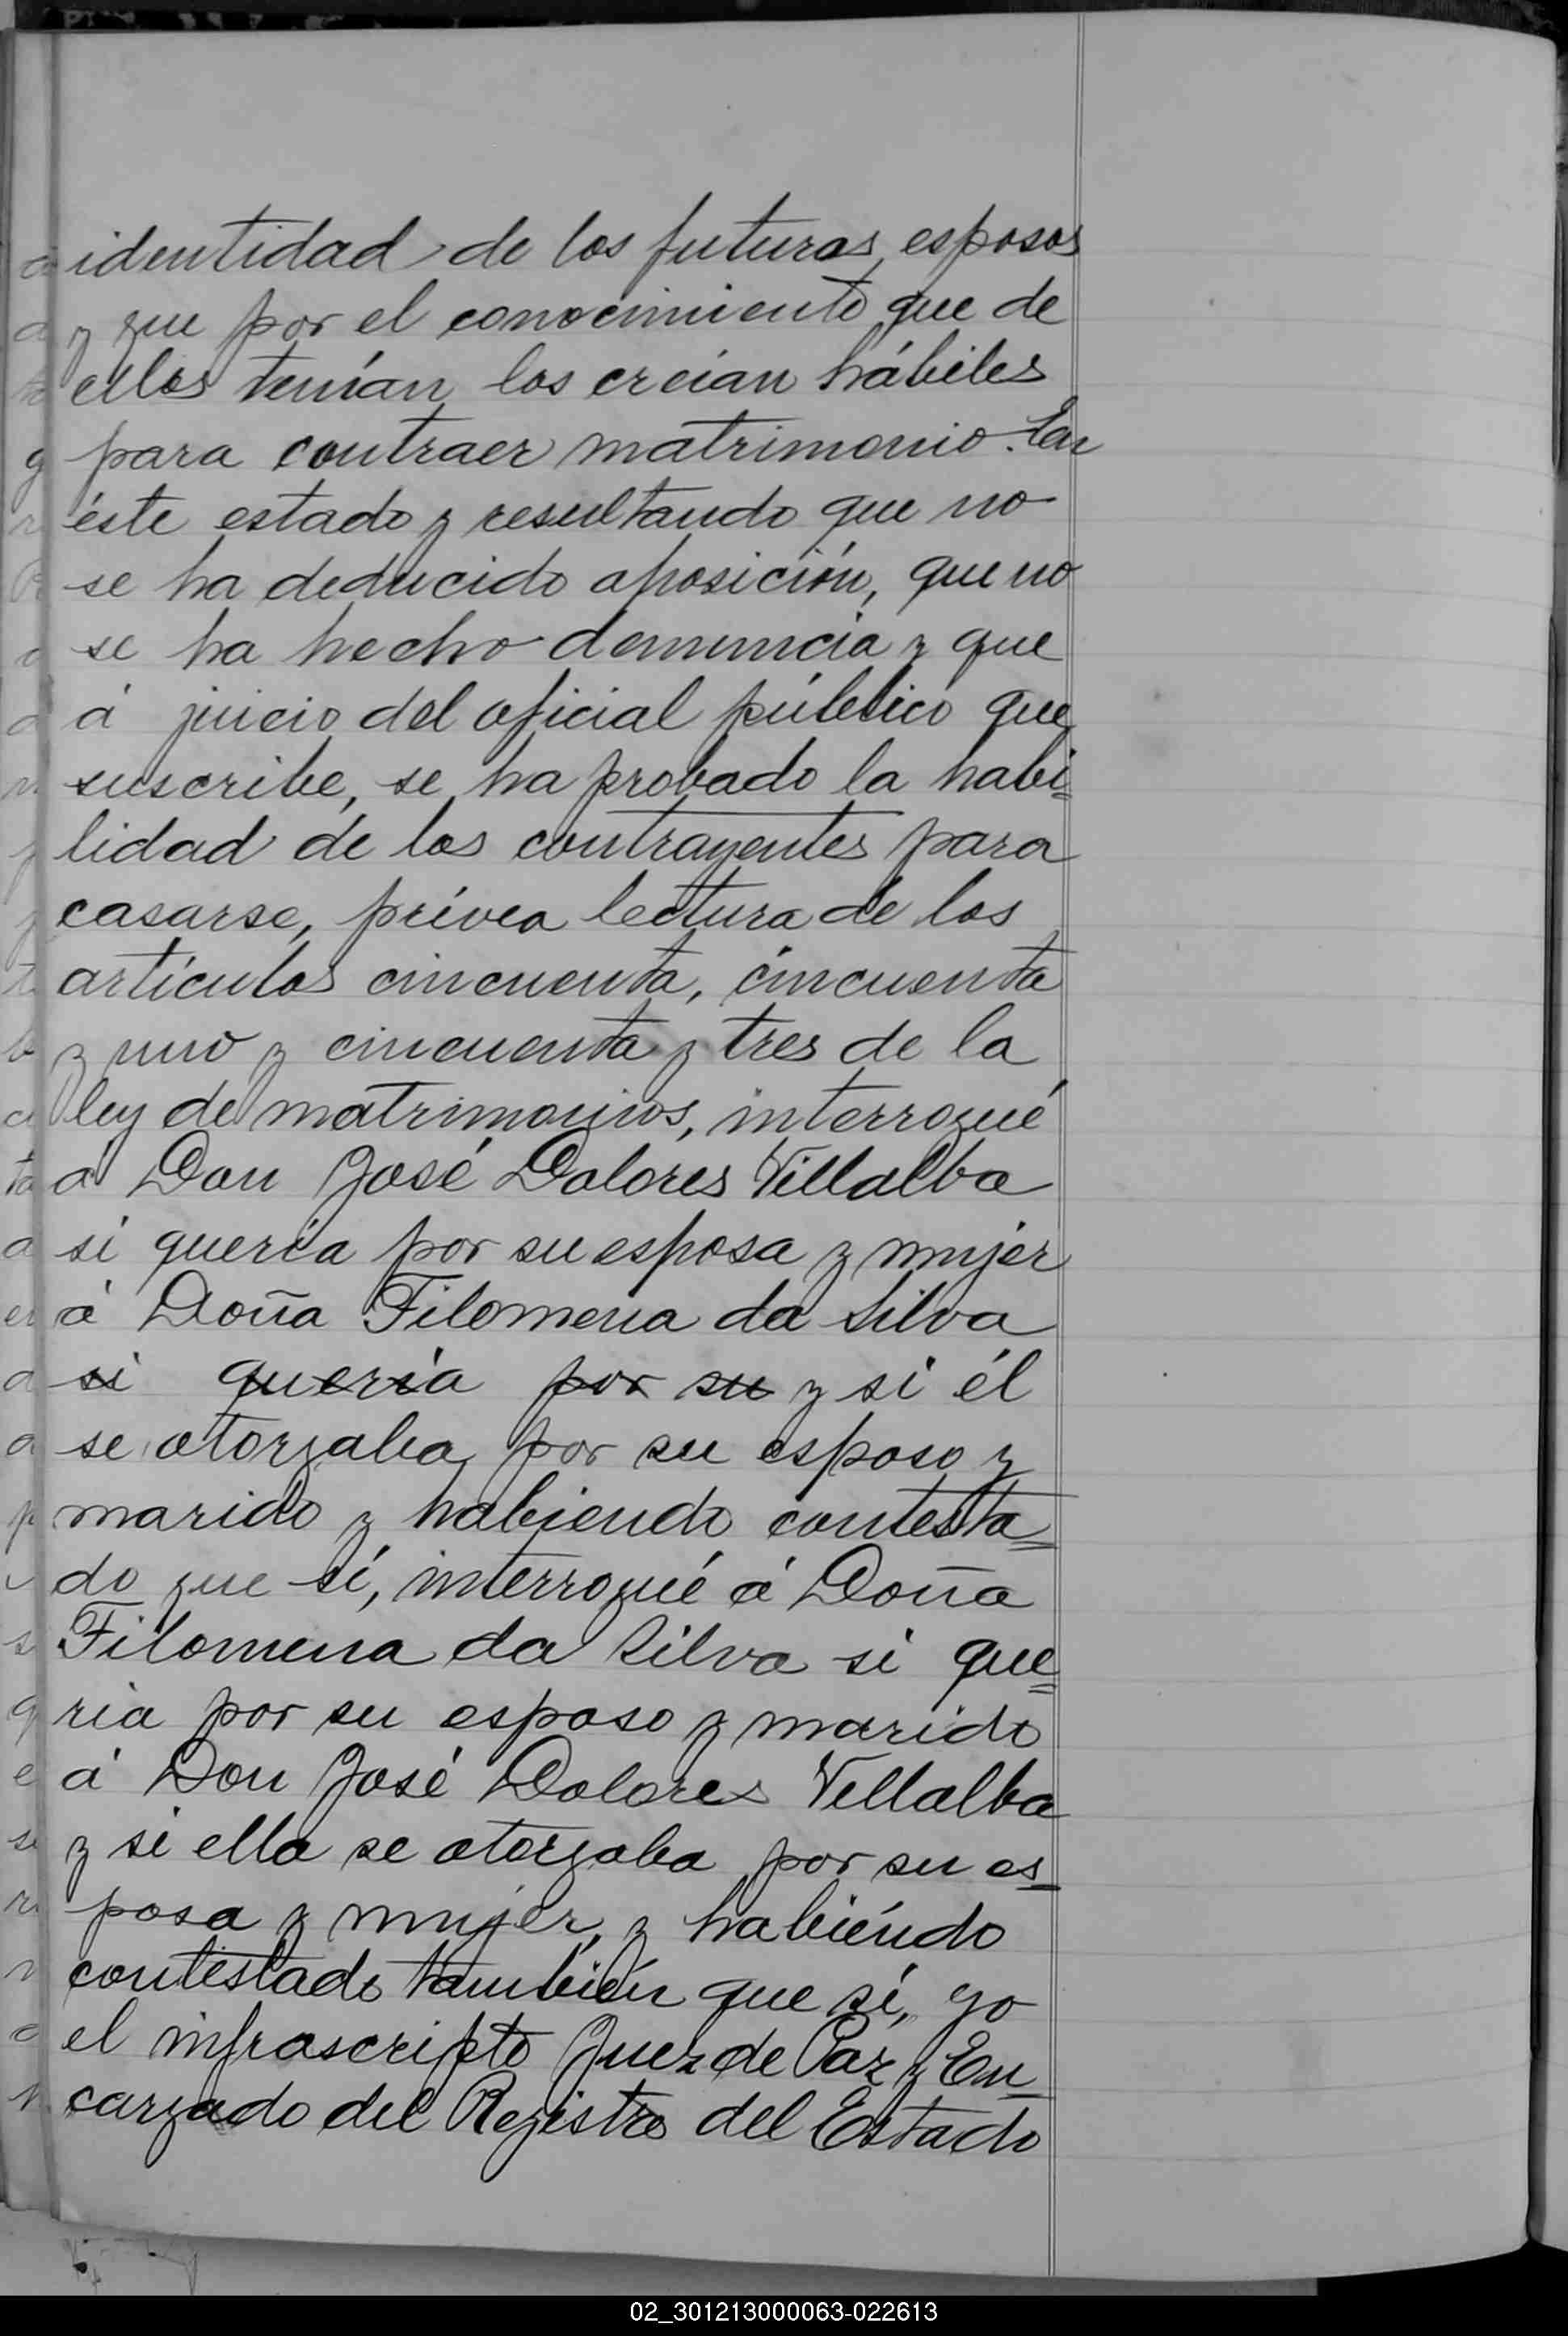 identidad de los futuros esposos
y que por el conocimiento que de
ellos tenían los creían hábiles
para contraer matrimonio. En
éste estado y resultando que no
se ha deducido oposición, que no
se ha hecho denuncia y que
á juicio del oficial público que
suscribe, se ha probado la habi=
lidad de los contrayentes para
casarse, prévea lectura de los
artículos cincuenta, cincuenta
y uno y cincuenta y tres de la
ley de matrimonios, interrogué
á Don José Dolores Villalba
si quería por su esposa y mujer
á Doña Filomena da Silva
si queria por su y si él
se otorgaba por su esposo y
marido y habiendo contesta=
do que sí, interrogué á Doña
Filomena da Silva si que=
ria por su esposo y marido
á Don José Dolores Villalba
y si ella se otorgaba por su es_
posa y mujer, y habiéndo
contestado también que sí, yo
el infrascripto Juez de Paz y En_
cargado del Registro del Estado
02_301213000063-022613